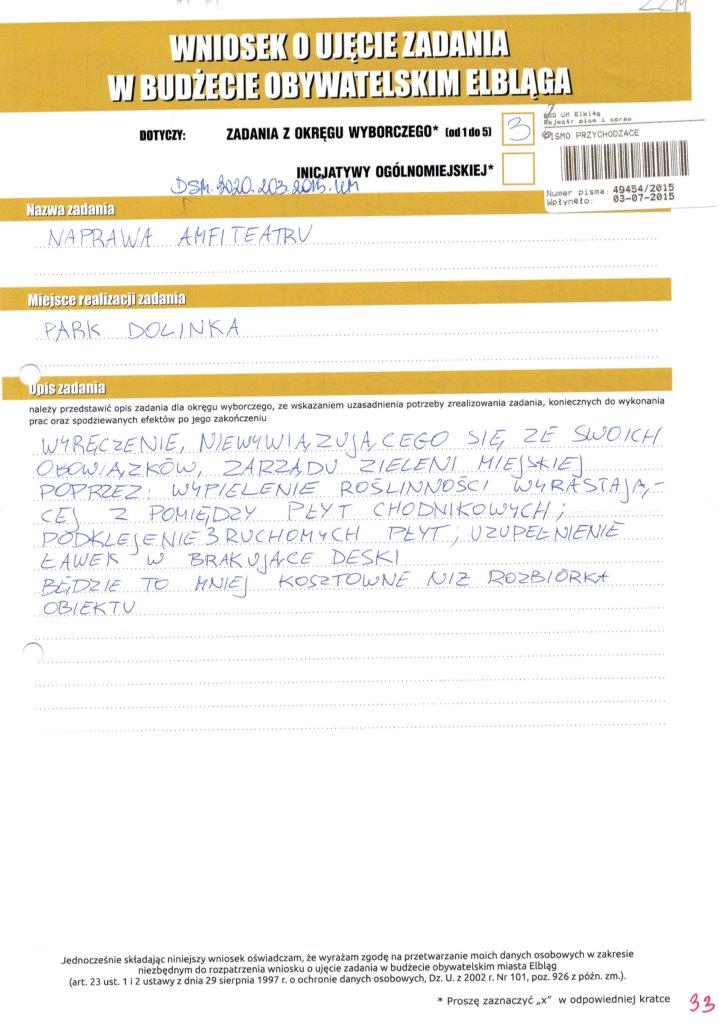 WNIOSEK O UJĘCIE ZADANIA
W BUDŻECIE OBYWATELSKIM ELBLĄGA
DOTYCZY: ZADANIA Z OKRĘGU WYBORCZEGO* (od 1 do 5) 3
EOD UM Elbląg
Rejestr pism i spraw
PISMO PRZYCHODZĄCE
Numer pisma: 49454/2015
Wpłynęło: 03-07-2015
INICJATYWY OGÓLNOMIEJSKIEJ*
Nazwa zadania
NAPRAWA AMFITEATRU
Miejsce realizacji zadania
PARK DOLINKA
Opis zadania
należy przedstawić opis zadania dla okręgu wyborczego, ze wskazaniem uzasadnienia potrzeby zrealizowania zadania, koniecznych do wykonania
prac oraz spodziewanych efektów po jego zakończeniu
WYRĘCZENIE, NIEWYWIĄZUJĄCEGO SIĘ ZE SWOICH
OBOWIĄZKÓW, ZARZĄDU ZIELENI MIEJSKIEJ
POPRZEZ: WYPIELENIE ROŚLINNOŚCI WYRASTAJĄ,-
CEJ Z POMIĘDZY PŁYT CHODNIKOWYCH;
PODKLEJENIE 3 RUCHOMYCH PŁYT; UZUPEŁNIENIE
ŁAWEK W BRAKUJĄCE DESKI
BĘDZIE TO MNIEJ KOSZTOWNE NIŻ ROZBIÓRKA
OBIEKTU
Jednocześnie składając niniejszy wniosek oświadczam, że wyrażam zgodę na przetwarzanie moich danych osobowych w zakresie
niezbędnym do rozpatrzenia wniosku o ujęcie zadania w budżecie obywatelskim miasta Elbląg
(art. 23 ust. 1 i 2 ustawy z dnia 29 sierpnia 1997 r. o ochronie danych osobowych, Dz. U. z 2002 r. Nr 101, poz. 926 z późn. zm.).
* Proszę zaznaczyć „x” w odpowiedniej kratce
33